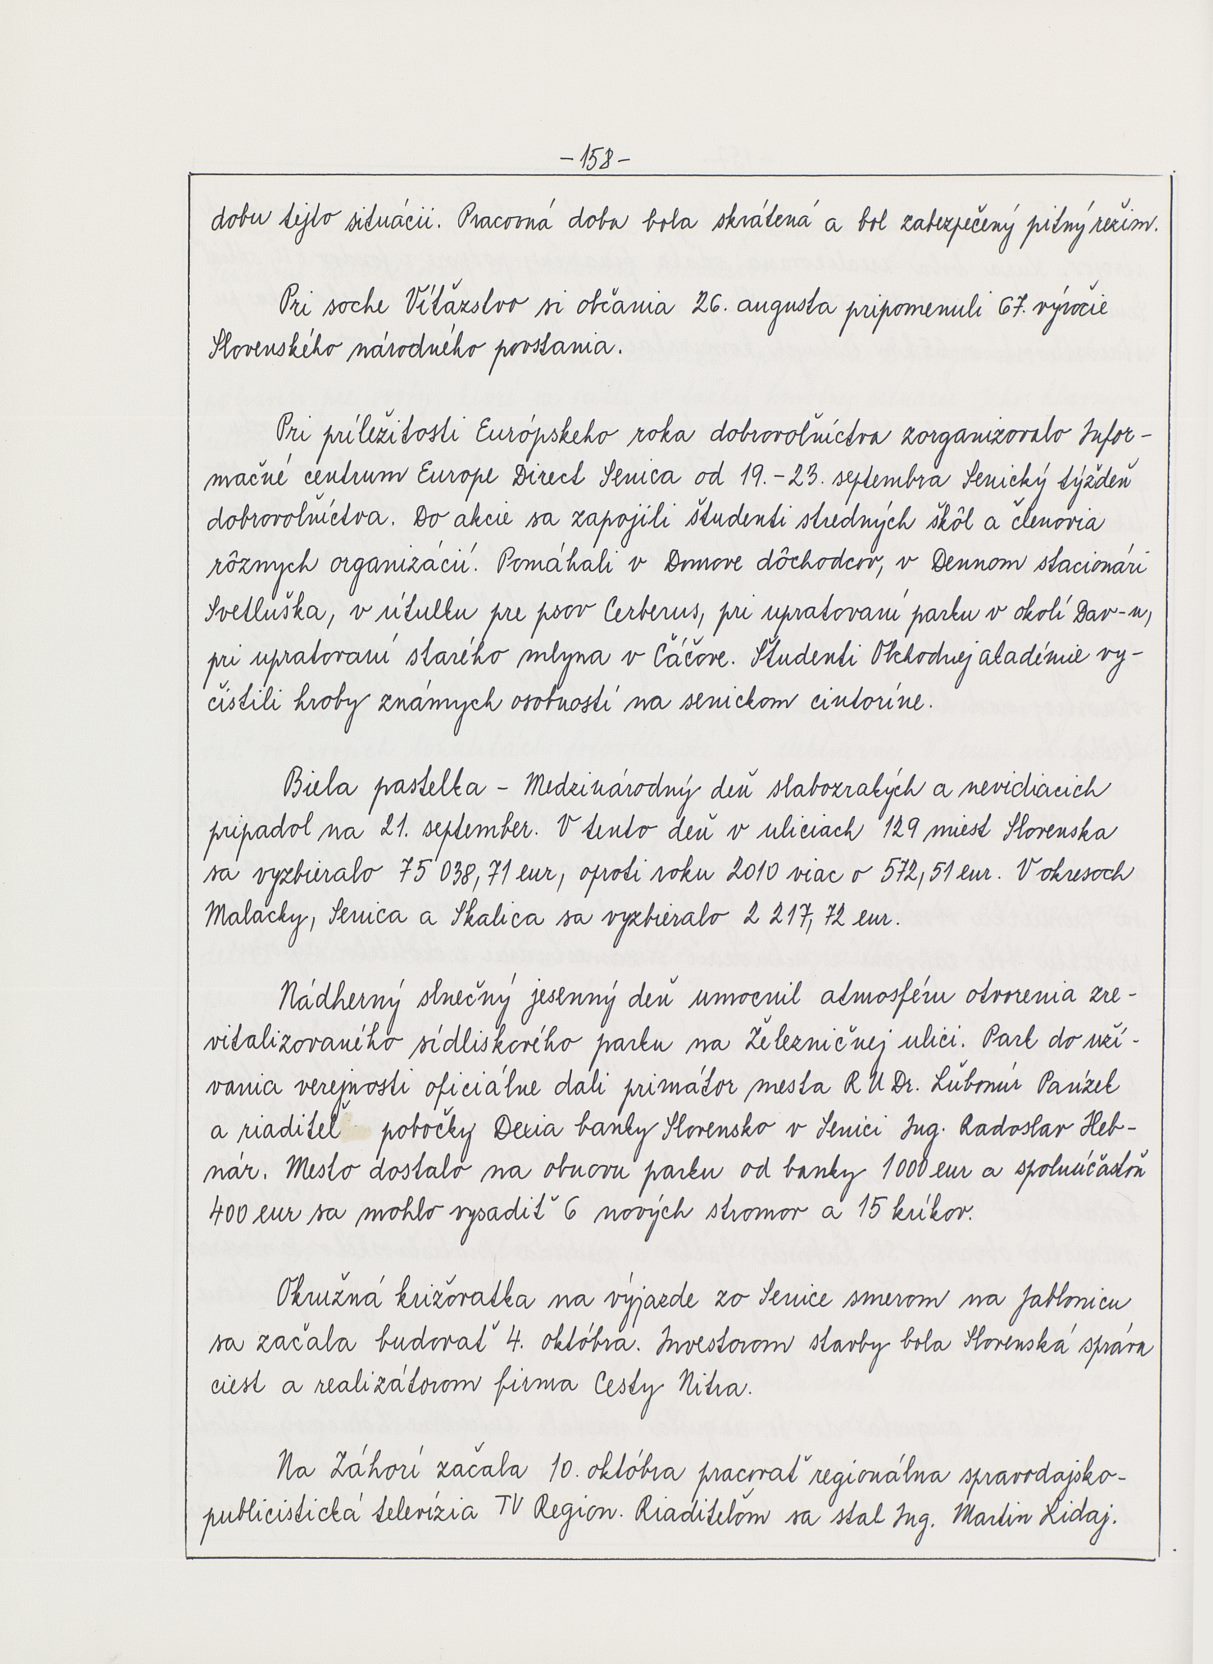 -158-
dobu tejto situácii. Pracovná doba bola skrátená a bol zabezpečený pitný režim.
Pri soche Víťazstvo si občania 26. augusta pripomenuli 67. výročie
Slovenského národného povstania.
Pri príležitosti Európskeho roka dobrovoľníctva zorganizovalo Infor-
mačné centrum Europe Direct Senica od 19.-23. septembra Senický týždeň
dobrovoľníctva. Do akcie sa zapojili študenti stredných škôl a členovia
rôznych organizácií. Pomáhali v Domove dôchodcov, v Dennom stacionári
Svetluška, v útulku pre psov Cerberus, pri upratovaní parku v okolí Dav-u,
pri upratovaní starého mlyna v Čáčove. Študenti Obchodnej akadémie vy-
čistili hroby známych osobností na senickom cintoríne.
Biela pastelka - Medzinárodný deň slabozrakých a nevidiacich
pripadol na 21. september. V tento deň v uliciach 129 miest Slovenska
sa vyzbieralo 75 038,71 eur, oproti roku 2010 viac o 572,51 eur. V okresoch
Malacky, Senica a Skalica sa vyzbieralo 2 217,72 eur.
Nádherný slnečný jesenný deň umocnil atmosféru otvorenia zre-
vitalizovaného sídliskového parku na Železničnej ulici. Park do uží-
vania verejnosti oficiálne dali primátor mesta RUDr. Ľubomír Parízek
a riaditeľ pobočky Dexia banky Slovensko v Senici Ing. Radoslav Heb-
nár. Mesto dostalo na obnovu parku od banky 1000 eur a spoluúčasťou
400 eur sa mohlo vysadiť 6 nových stromov a 15 kríkov.
Okružná križovatka na výjazde zo Senice smerom na Jablonicu
sa začala budovať 4. októbra. Investorom stavby bola Slovenská správa
ciest a realizátorom firma Cesty Nitra.
Na Záhorí začala 10. októbra pracovať regionálna spravodajsko-
publicistická televízia TV Region. Riaditeľom sa stal Ing. Martin Lidaj.